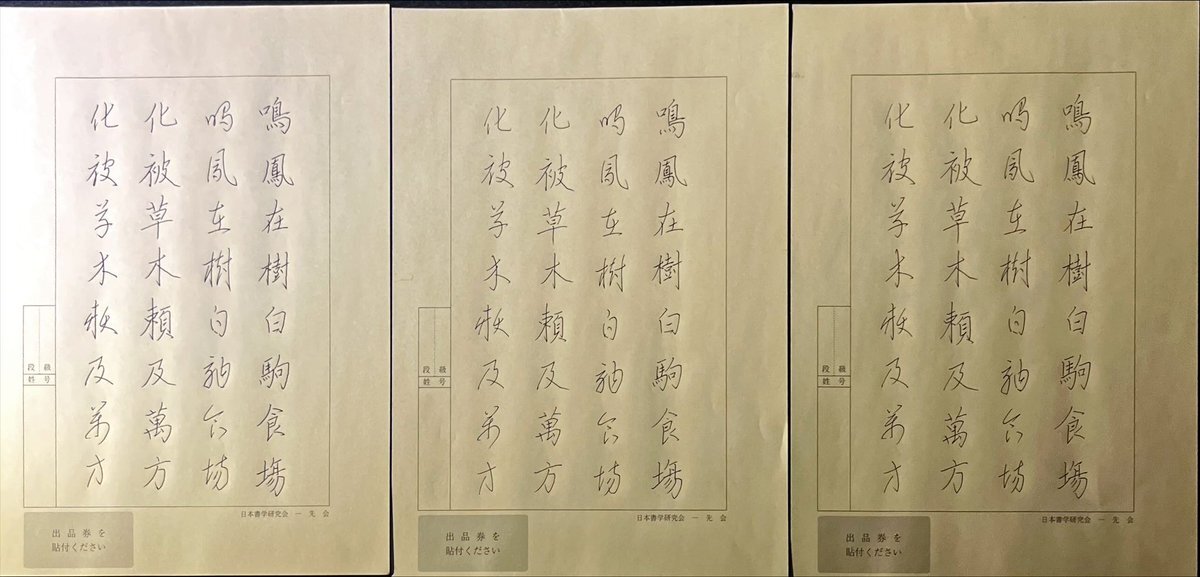 鳴鳳在樹白駒食塲
鳴鳳在樹白駒食場
化被草木頼及萬方
化被草木頼及萬方
段級
姓号
日本書学研究会 一先会
出品券を
貼付ください
鳴鳳在樹白駒食塲
鳴鳳在樹白駒食場
化被草木頼及萬方
化被草木頼及萬方
段級
姓号
日本書学研究会 一先会
出品券を
貼付ください
鳴鳳在樹白駒食塲
鳴鳳在樹白駒食場
化被草木頼及萬方
化被草木頼及萬方
段級
姓号
日本書学研究会 一先会
出品券を
貼付ください